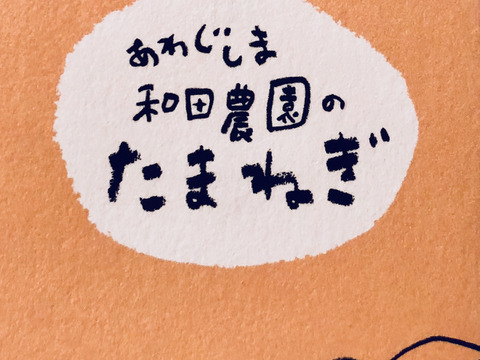 あわじしま
和田農園の
たまねぎ